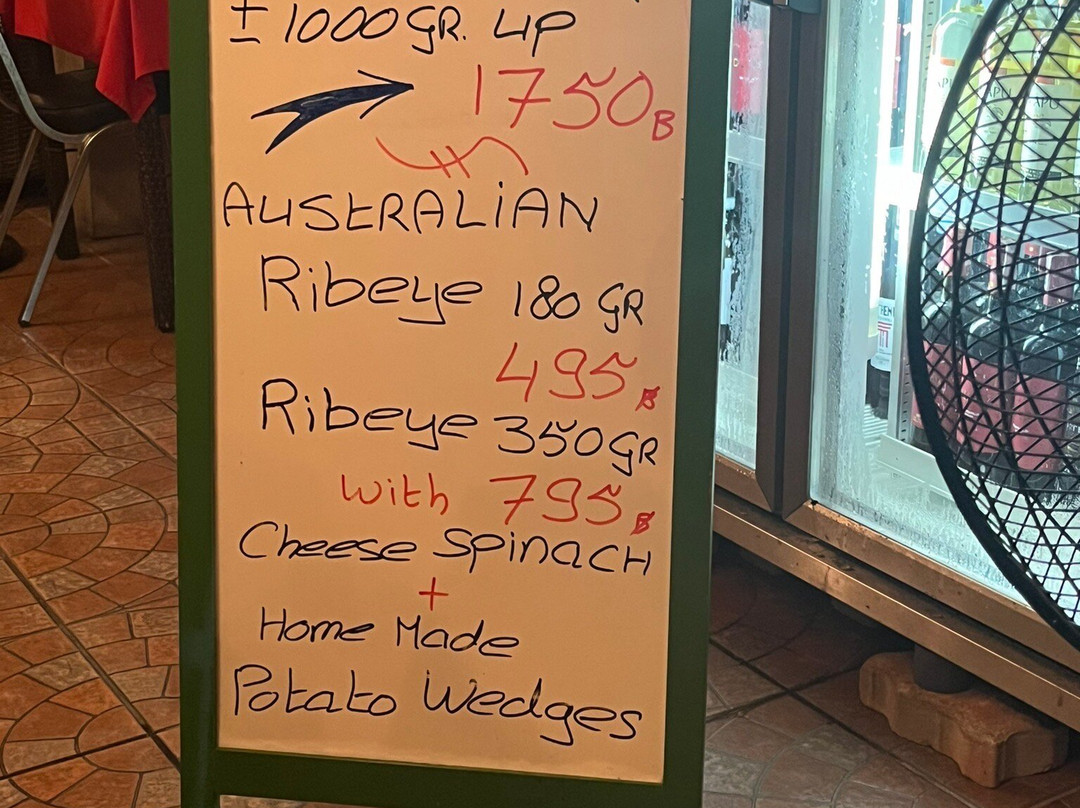 ± 1000 GR. UP
1750 B
AUSTRALIAN
Ribeye 180 GR
495 ฿
Ribeye 350 GR
with 795 ฿
Cheese Spinach
+
Home Made
Potato Wedges